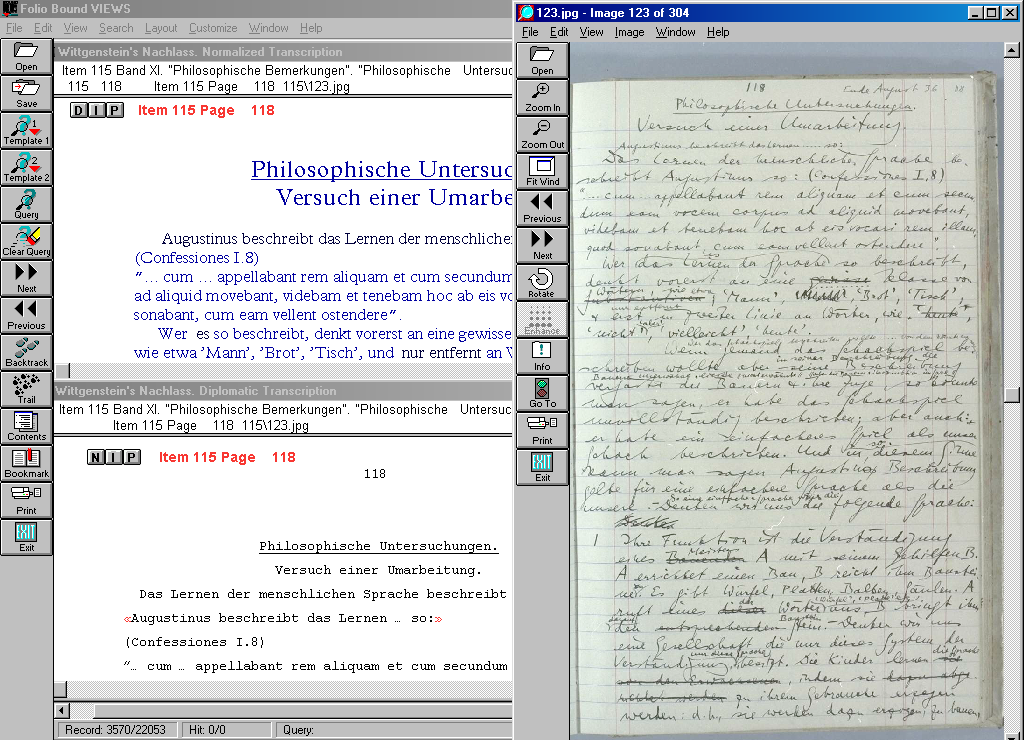 Folio Bound VIEWS
File Edit View Search Layout Customize Window Help
Open
Save
Template 1
Template 2
Query
Clear Query
Next
Previous
Backtrack
Trail
Contents
Bookmark
Print
Exit
Wittgenstein's Nachlass. Normalized Transcription
Item 115 Band XI. "Philosophische Bemerkungen". "Philosophische Untersuc
115 118 Item 115 Page 118 115\123.jpg
D I P Item 115 Page 118
Philosophische Untersuc
Versuch einer Umarbe
Augustinus beschreibt das Lernen der menschliche
(Confessiones I.8)
"… cum … appellabant rem aliquam et cum secundum
ad aliquid movebant, videbam et tenebam hoc ab eis vo
sonabant, cum eam vellent ostendere".
Wer es so beschreibt, denkt vorerst an eine gewisse
wie etwa 'Mann', 'Brot', 'Tisch', und nur entfernt an W
Wittgenstein's Nachlass. Diplomatic Transcription
Item 115 Band XI. "Philosophische Bemerkungen". "Philosophische Untersuc
Item 115 Page 118 115\123.jpg
N I P Item 115 Page 118
118
Philosophische Untersuchungen.
Versuch einer Umarbeitung.
Das Lernen der menschlichen Sprache beschreibt
«Augustinus beschreibt das Lernen … so:»
(Confessiones I.8)
"… cum … appellabant rem aliquam et cum secundum
Record: 3570/22053 Hit: 0/0 Query:
123.jpg - Image 123 of 304
File Edit View Image Window Help
Open
Zoom In
Zoom Out
Fit Wind
Previous
Next
Rotate
Enhance
Info
Go To
Print
Exit
118 Ende August 36
Philosophische Untersuchungen.
Versuch einer Umarbeitung.
Augustinus beschreibt das Lernen … so:
Das Lernen der menschlichen Sprache be-
schreibt Augustinus so: (Confessiones I,8)
"… cum appellabant rem aliquam et cum secun
dum eam vocem corpus ad aliquid movebant,
videbam et tenebam hoc ab eis vocari rem illam,
quod sonabant, cum eam vellent ostendere".
Wer das Lernen der Sprache so beschreibt,
denkt vorerst an eine Klasse von
Wörtern, wie etwa
'Mann', 'Brot', 'Tisch',
in zweiter Linie an Wörter, wie 'heute',
'nicht', 'vielleicht', 'heute'.
Wenn jemand das Schachspiel be-
schreiben wollte, aber seine Beschreibung
der Bauern so könnte
man sagen, er habe das Schachspiel
unvollständig beschrieben, aber auch:
er habe ein einfacheres Spiel als unser
Schach beschrieben. Und in diesem Sinne
kann man sagen Augustinus Beschreibung
gelte für eine einfachere Sprache als die
unsere. - Denken wir uns die folgende Sprache:
1 Ihre Funktion ist die Verständigung
eines Bauenden A mit seinem Gehilfen B.
Meister
A errichtet einen Bau, B reicht ihm Baustei
ne. Es gibt Würfel, Platten, Balken, Säulen. A
ruft eines dieser Wörter aus, B bringt ihm
den entsprechenden Stein. - Denken wir uns
eine Gesellschaft die nur dieses System der
Verständigung besitzt. Die Kinder lernen
die Sprache
von den Erwachsenen, indem sie
zu ihrem Gebrauche erzogen
werden: d.h., sie werden dazu erzogen, zu bauen,